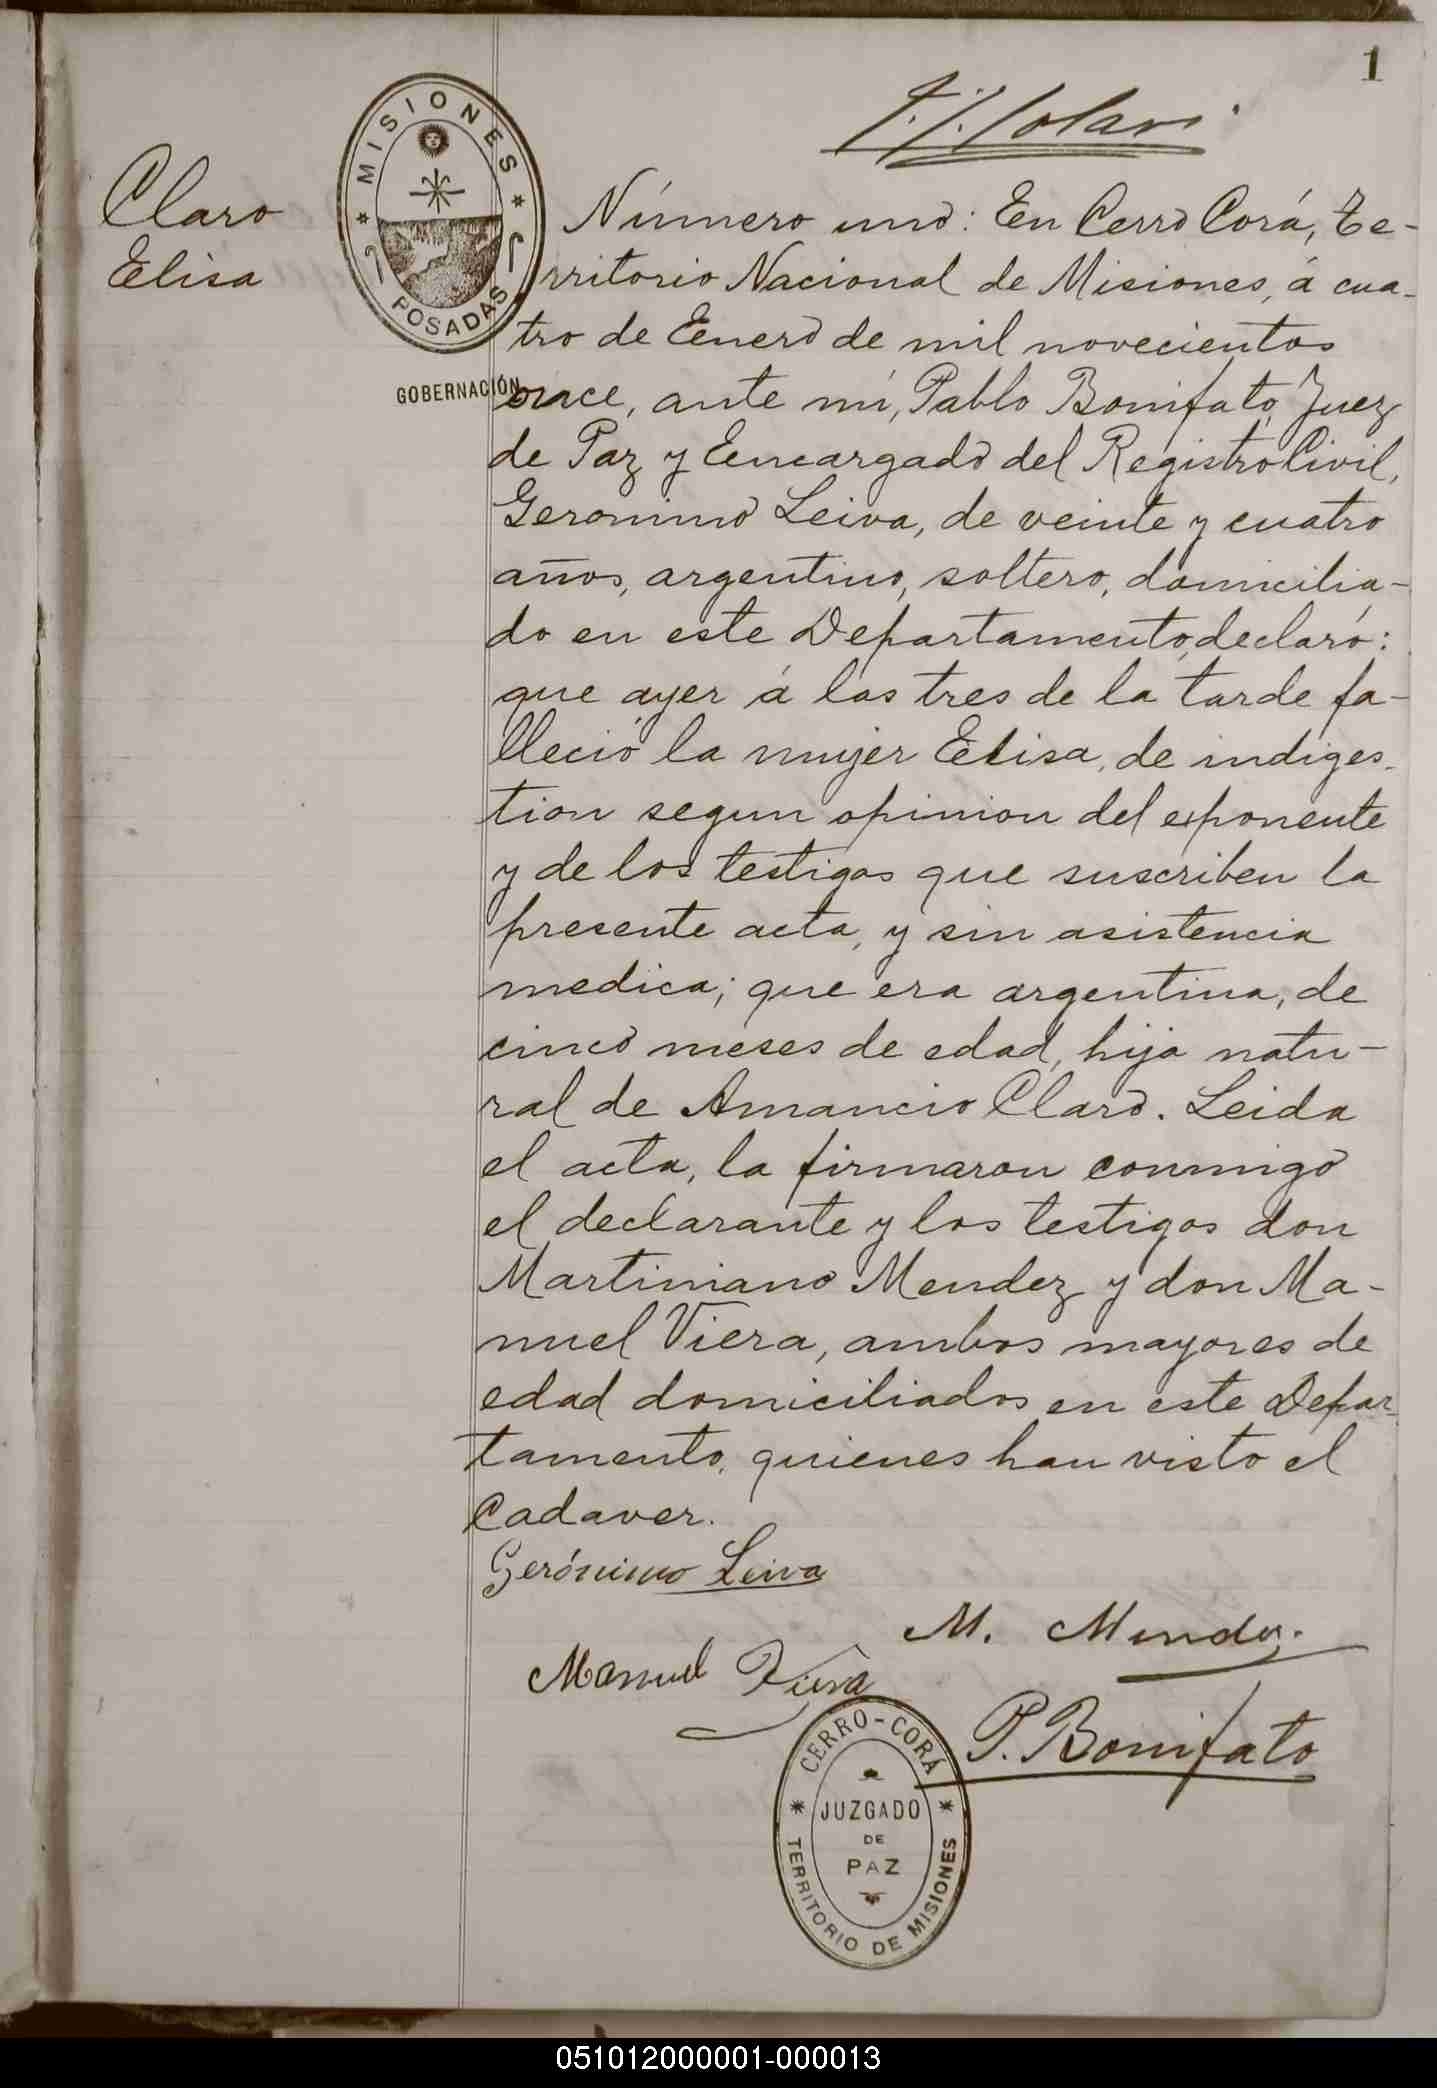 1
Claro
Elisa
MISIONES
POSADAS
GOBERNACIÓN
Número uno: En Cerro Corá, Te-
rritorio Nacional de Misiones, á cua-
tro de Enero de mil novecientos
once, ante mí, Pablo Bonifato, Juez
de Paz y Encargado del Registro Civil,
Geronimo Leiva, de veinte y cuatro
años, argentino, soltero, domicilia-
do en este Departamento, declaró:
que ayer á las tres de la tarde fa-
lleció la mujer Elisa, de indiges-
tion segun opinion del exponente
y de los testigos que suscriben la
presente acta, y sin asistencia
medica; que era argentina, de
cinco meses de edad, hija natu-
ral de Amancio Claro. Leida
el acta, la firmaron conmigo
el declarante y los testigos don
Martiniano Mendez y don Ma-
nuel Viera, ambos mayores de
edad domiciliados en este Depar-
tamento, quienes han visto el
Cadaver.
Gerónimo Leiva
M. Mendez.
Manuel Viera
P. Bonifato
CERRO-CORÁ
JUZGADO
DE
PAZ
TERRITORIO DE MISIONES
051012000001-000013